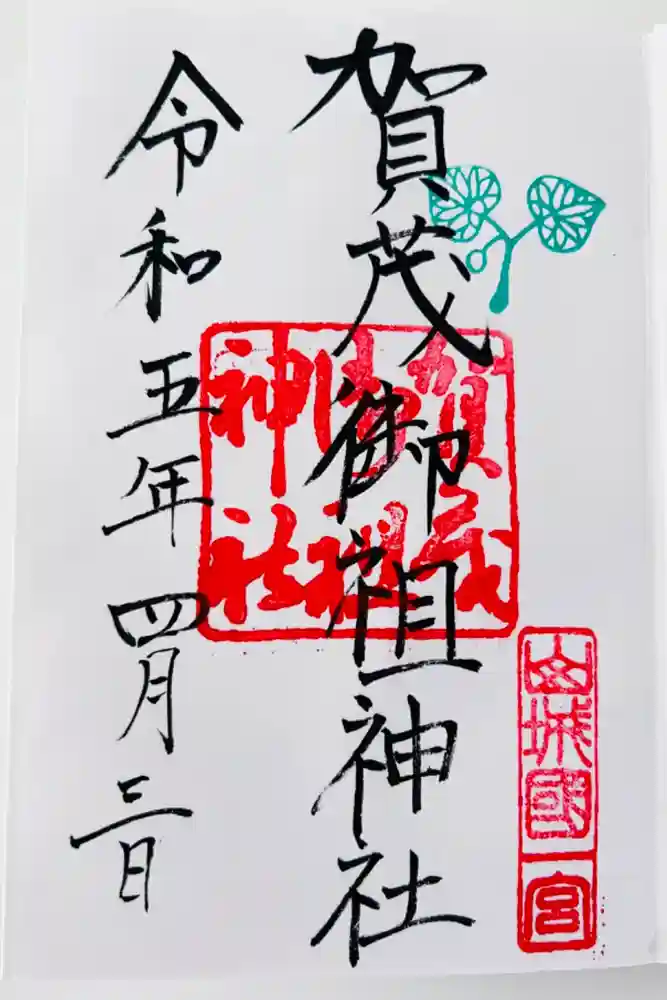 山城國一宮
賀茂御祖神社
賀茂御祖神社
令和五年四月三日